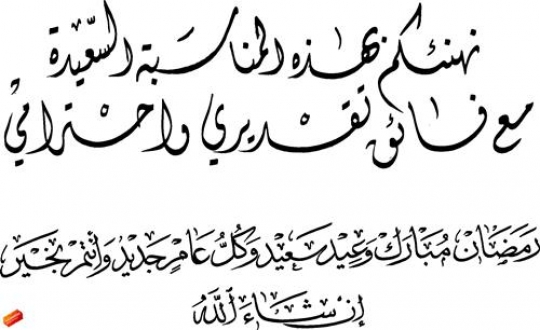 نهنئكم بهذه المناسبة السّعيدة
مع فائق تقديري واحترامي
رَمَضَان مُبَارَك وَعِيد سَعِيْد وَكُلُّ عَامٍ جَدِيْد وَأنتُم بخَيْر
إن شَاءَ اللَّه